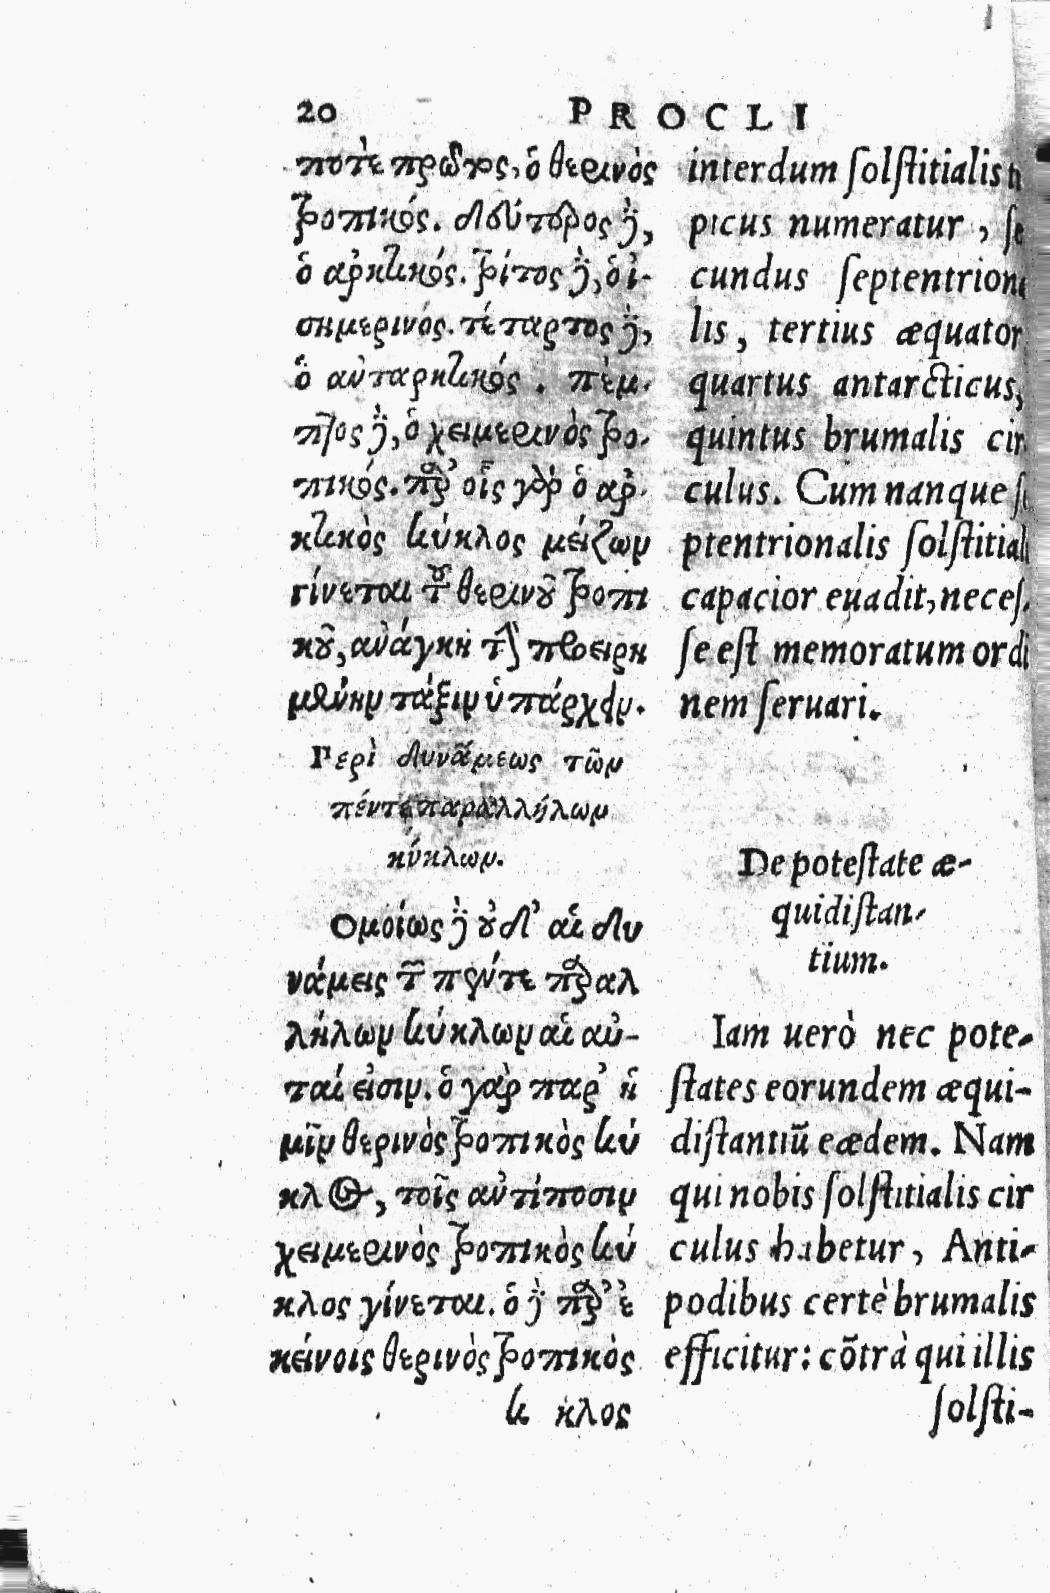 20 PROCLI
ποτὲ πρῶτος, ὁ θερινὸς
τροπικός. δεύτερος δὲ,
ὁ αρκτικός. τρίτος δὲ, ὁ ἰ-
σημερινός. τέταρτος δὲ,
ὁ ανταρκτικός. πέμ-
πτος δὲ, ὁ χειμερινὸς τρο-
πικός. παρ' οἷς γὰρ ὁ αρ-
κτικὸς κύκλος μείζων
γίνεται τοῦ θερινοῦ τροπι
κοῦ, ανάγκη τὴν προειρη
μένην τάξιν ὑπάρχειν.
Περὶ δυνάμεως τῶν
πέντε παραλλήλων
κύκλων.
Ομοίως δὲ οὐδ' αἱ δυ
νάμεις τῶν πέντε παραλ
λήλων κύκλων αἱ αὐ-
ταί εἰσιν. ὁ γὰρ παρ' ἡ
μῖν θερινὸς τροπικὸς κύ
κλος, τοῖς αντίποσιν
χειμερινὸς τροπικὸς κύ
κλος γίνεται. ὁ δὲ παρ' ἐ
κείνοις θερινὸς τροπικὸς
κ κλος
interdum ſolſtitialis
picus numeratur, ſe
cundus ſeptentriona
lis, tertius æquator
quartus antarcticus,
quintus brumalis cir
culus. Cum nanque ſe
ptentrionalis ſolſtitiali
capacior euadit, neceſ-
ſe eſt memoratum ordi
nem ſeruari.
De poteſtate æ-
quidiſtan-
tium.
Iam uerò nec pote-
ſtates eorundem æqui-
diſtantiũ eædem. Nam
qui nobis ſolſtitialis cir
culus habetur, Anti-
podibus certè brumalis
efficitur: cõtrà qui illis
ſolſti-